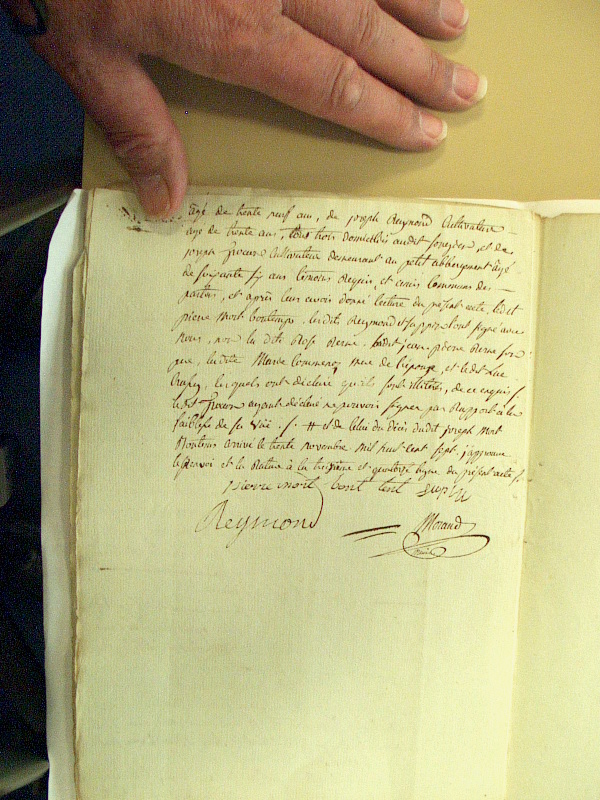 âgé de trente neuf ans, de joseph Reymond Cultivateur
age de trente ans, tous trois domiciliés audit songieu, et de
joseph Cultivateur demeurant au petit abbergement âgé
de soixante ans temoins Requis, et amis communs des
parties, et après leur avoir donné lecture du présent acte, ledit
pierre Mort bontemps, ledit Reymond et suppin l'ont signé avec
Nous, non la dite Rose Berne, ledit jean pierre Berne son
pere, la dite Marie mere de l'épouse, et ledit Luc
lesquels ont déclaré qu'ils sont illiterés, de ce enquis
ledit ayant déclaré ne pouvoir signer par Rapport à la
faiblesse de sa vue. et de celui du décès dudit joseph Mort
Bontems arrivé le trente novembre mil huit cent sept. j'approuve
le Renvoi et la Rature à la treizième et quatorze ligne du présent acte
pierre mort bont tent supin
Reymond Morand
maire